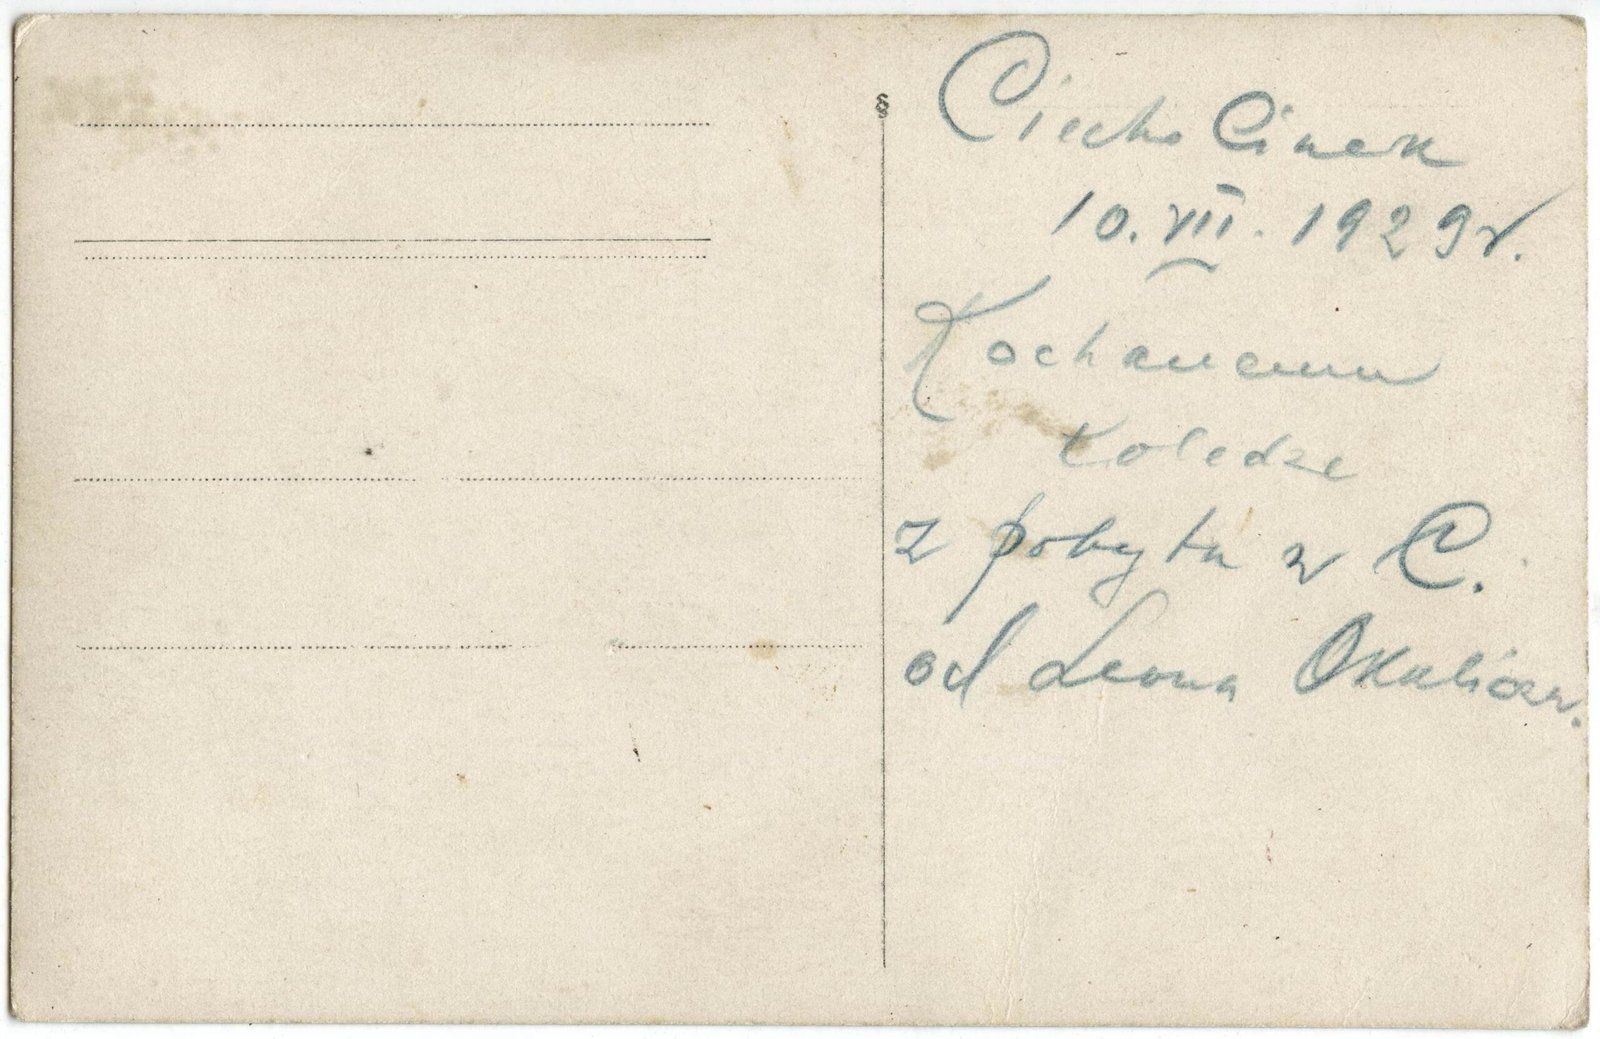 Ciecho Cinek
10.VII.1929r.
Kochanemu
koledze
z pobytu w C.
od Leona